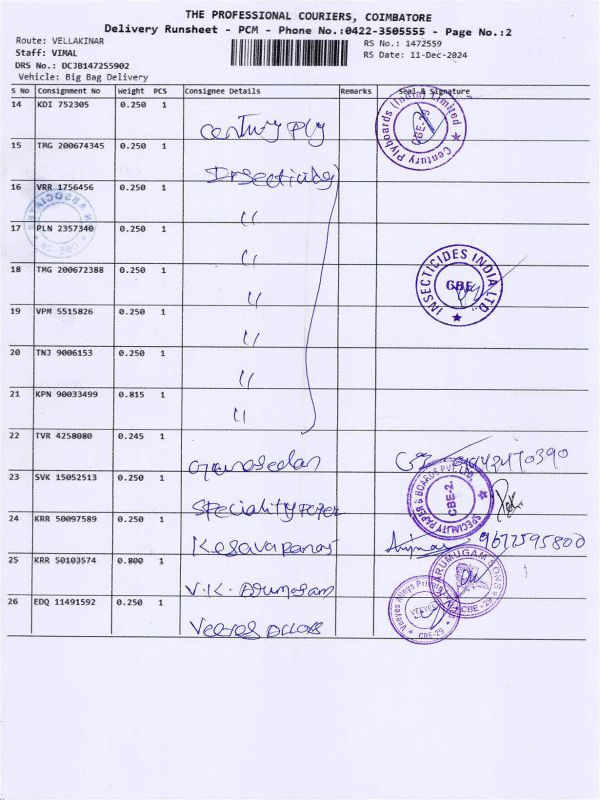 THE PROFESSIONAL COURIERS, COIMBATORE
Delivery Runsheet - PCM - Phone No.:0422-3505555 - Page No.:2
Route: VELLAKINAR
RS No.: 1472559
Staff: VIMAL
RS Date: 11-Dec-2024
DRS No.: DCJB147255902
Vehicle: Big Bag Delivery
S No Consignment No Weight PCS Consignee Details Remarks Seal & Signature
14 KDI 752305 0.250 1
Century Ply
Century Plyboards (India) Limited
CBE-29
15 TMG 200674345 0.250 1
Insecticides
16 VRR 1756456 0.250 1
"
K ASSOCIATES
17 PLN 2357340 0.250 1
"
18 TMG 200672388 0.250 1
"
INSECTICIDES INDIA LTD.,
CBE
19 VPM 5515826 0.250 1
"
20 TNJ 9006153 0.250 1
"
21 KPN 90033499 0.815 1
"
22 TVR 4258080 0.245 1
23 SVK 15052513 0.250 1
Speciality Paper
SPECIALITY PAPER & BOARDS PVT. LTD.
CBE-2.
24 KRR 50097589 0.250 1
9677595800
25 KRR 50103574 0.800 1
V.K. Arumugam
ARUMUGAM SONS
CBE-29
26 EDQ 11491592 0.250 1
Veeyes Alloys
Veeyes Alloys
VEEYES
CBE-29